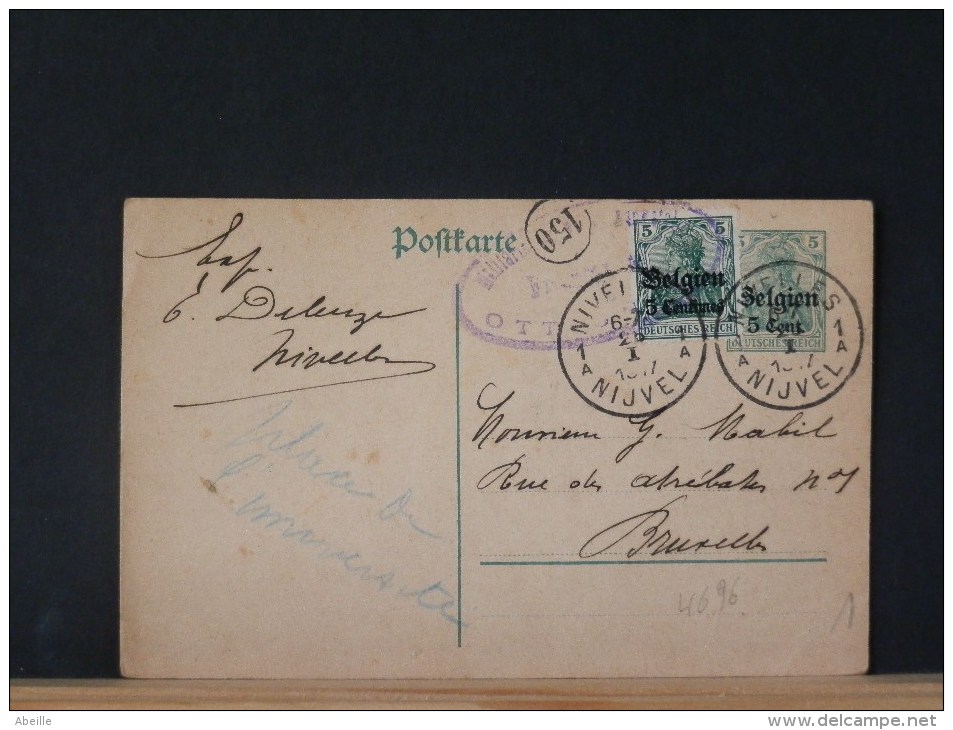 Postkarte
150
Exp.
E. Deleuze
Nivelles
5 5
Belgien
5 Centimes
DEUTSCHES REICH
5
Belgien
5 Cent.
DEUTSCHES REICH
NIVELLES
1 A
I
NIJVEL
NIVELLES
1 A
I
NIJVEL
OTT
Monsieur G. Mabil
Rue des atrébates n°1
Bruxelles
place de
université
4696
1
Abeille
www.delcampe.net